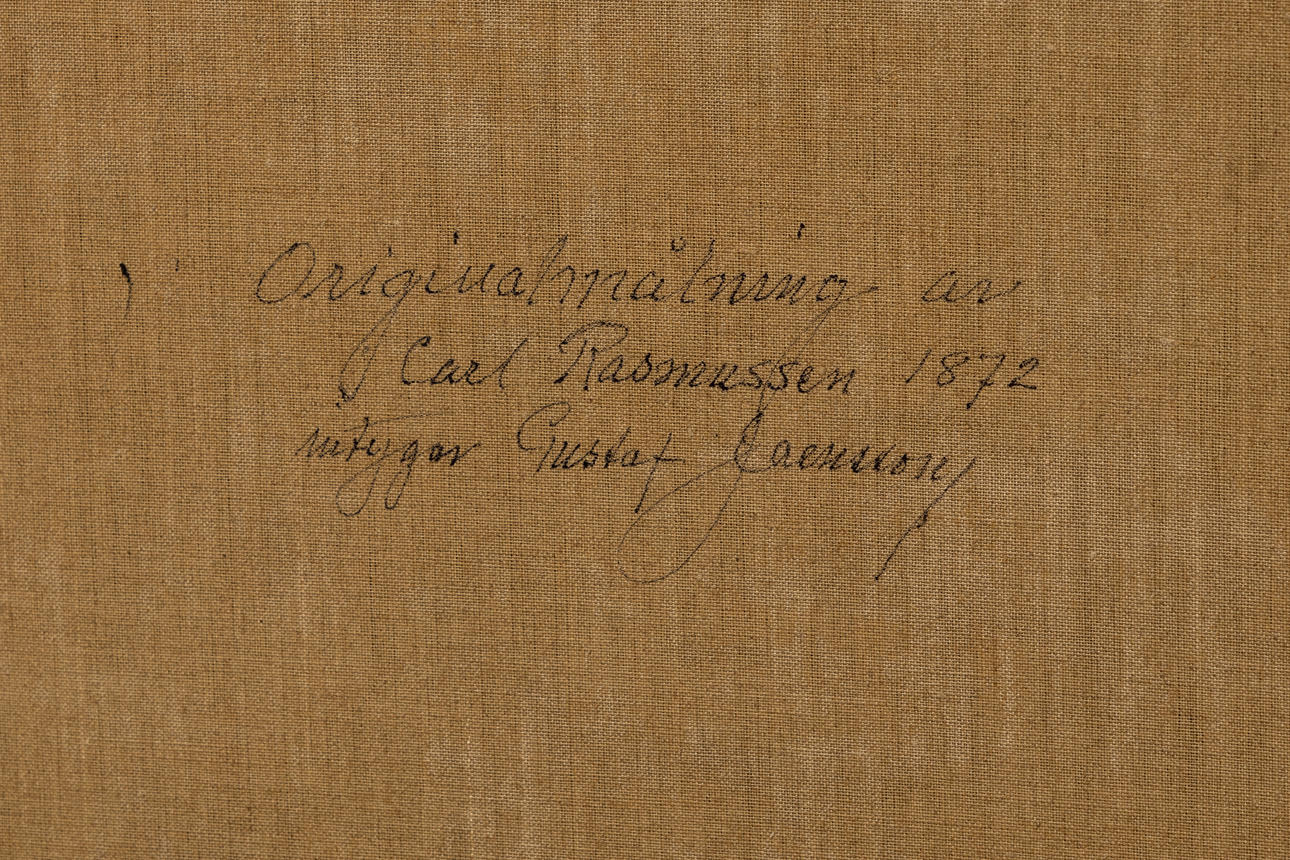 Originalmålning av
Carl Rasmussen 1872
intygar Gustaf Jaensson